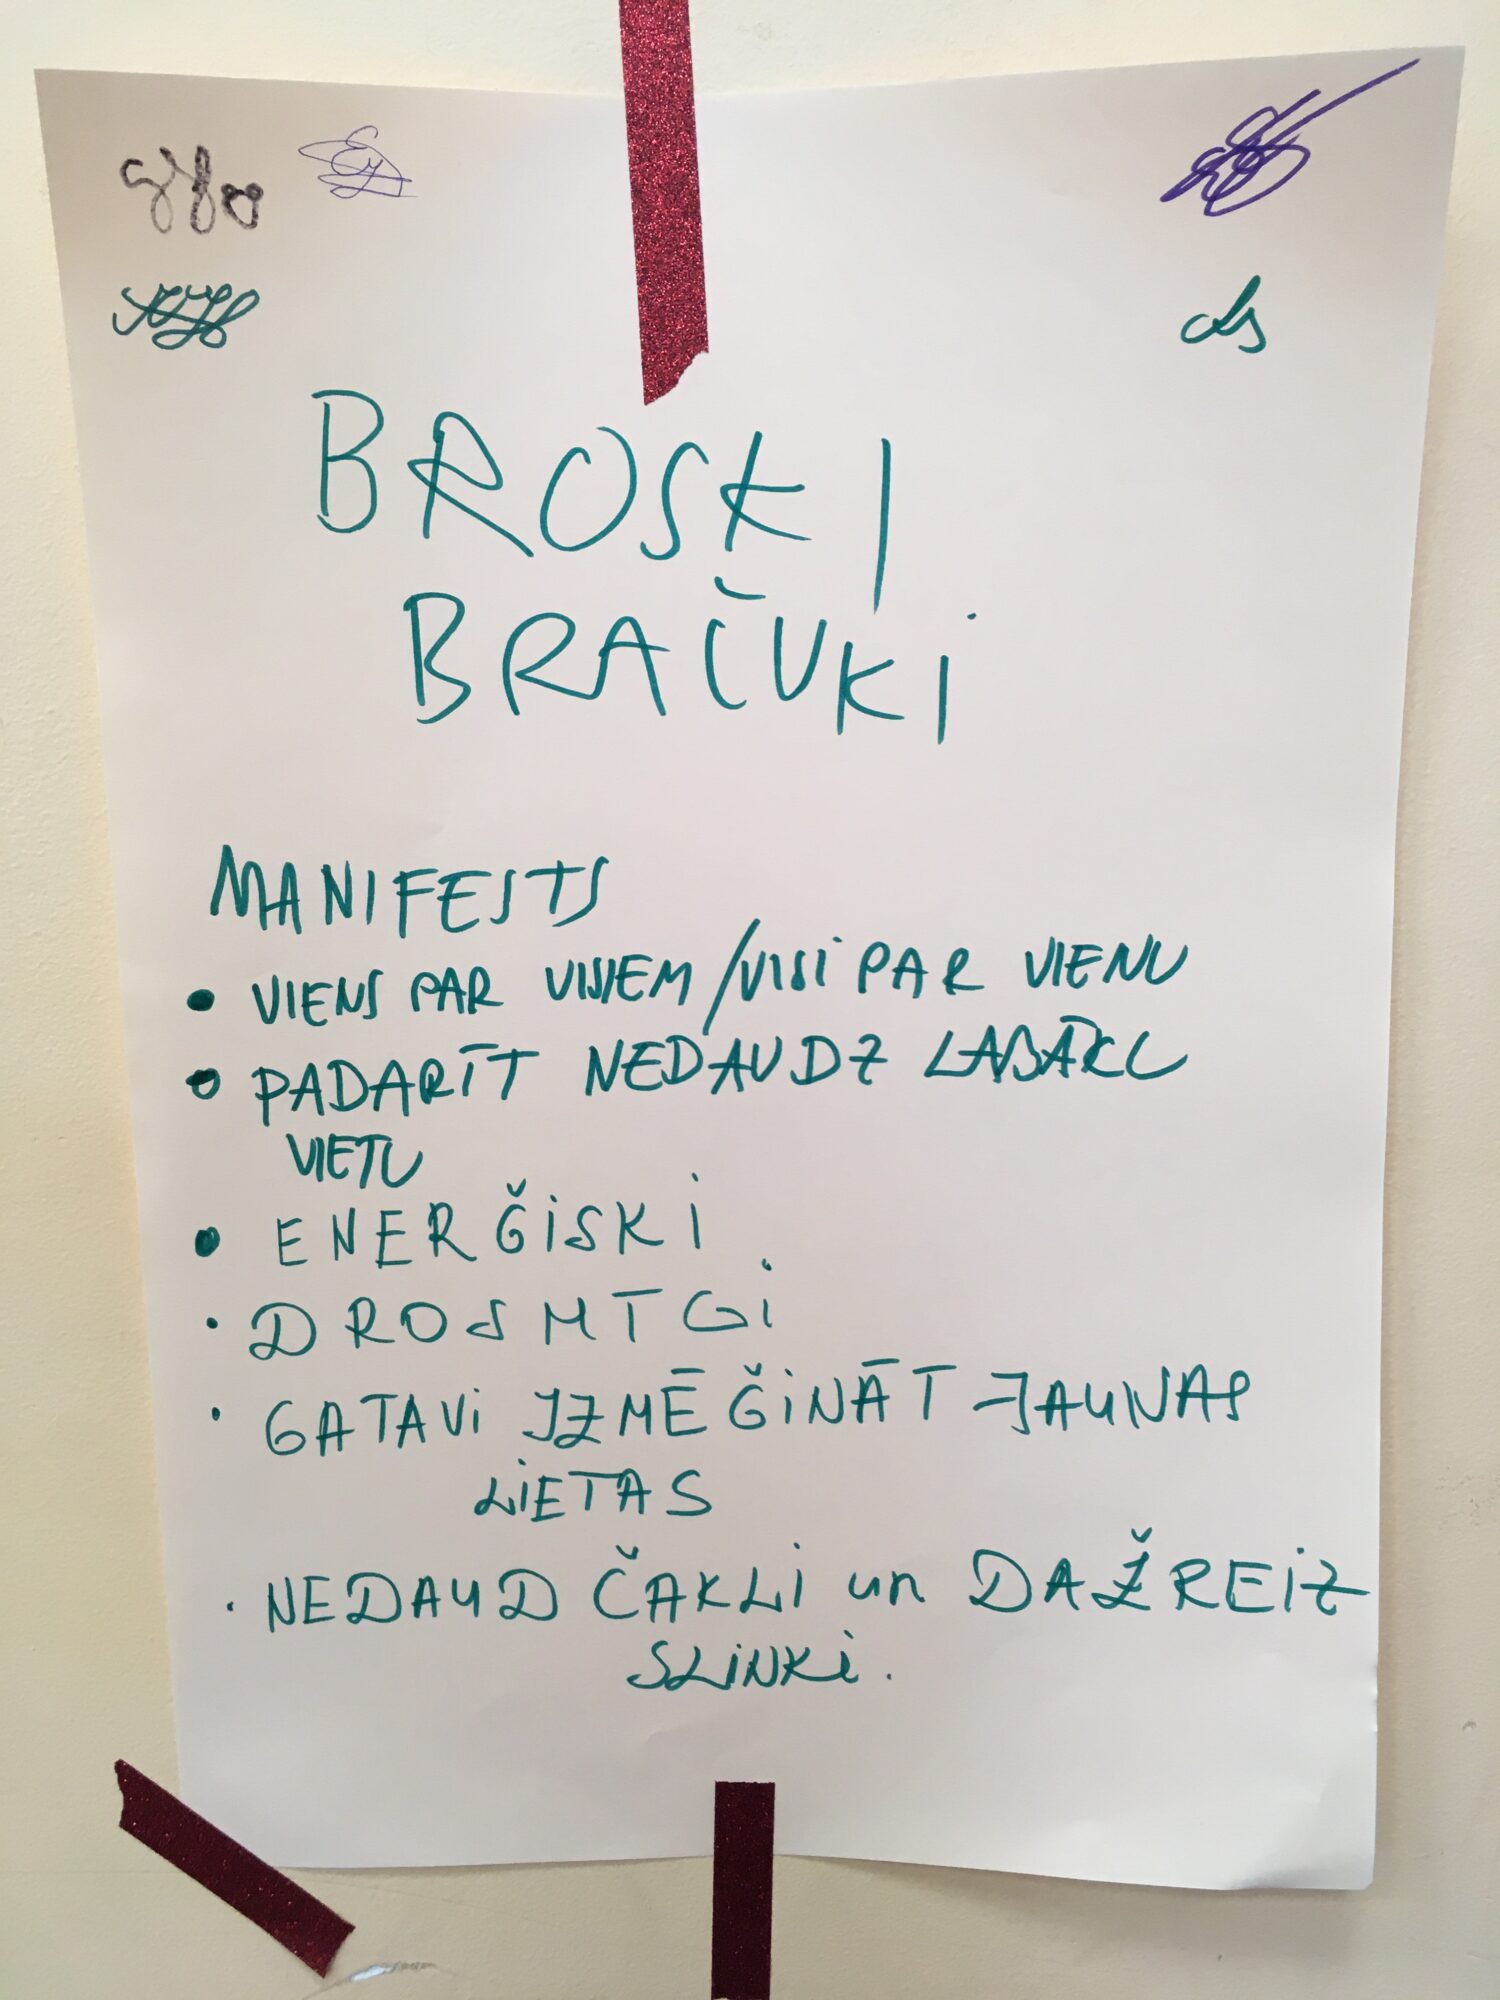 BROSKI
BRAČUKI
MANIFESTS
• VIENS PAR VISIEM/VISI PAR VIENU
• PADARĪT NEDAUDZ LABĀKU
VIETU
• ENERĞISKI
• DROSMTGI
• GATAVI IZMĒĞINĀT JAUNAS
LIETAS
• NEDAUD ČAKLI un DAŽREIZ
SLINKI.